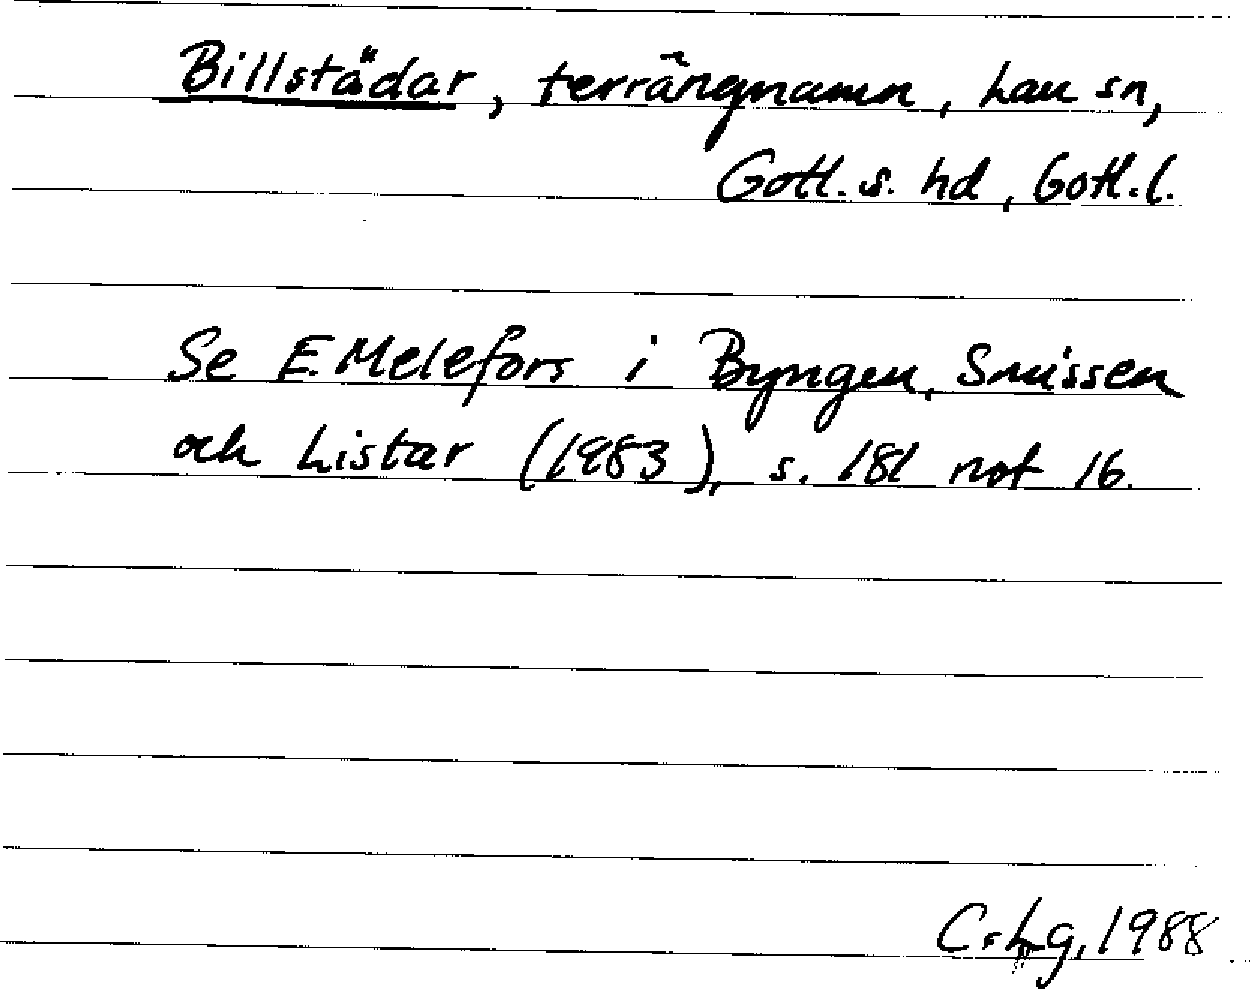 Billstädar, terrängnamn, Lau sn,
Gotl. s. hd, Gotl. l.
Se E. Melefors i Byngen, Snissen
och Listar (1983), s. 181 not 16.
C. Lg, 1988